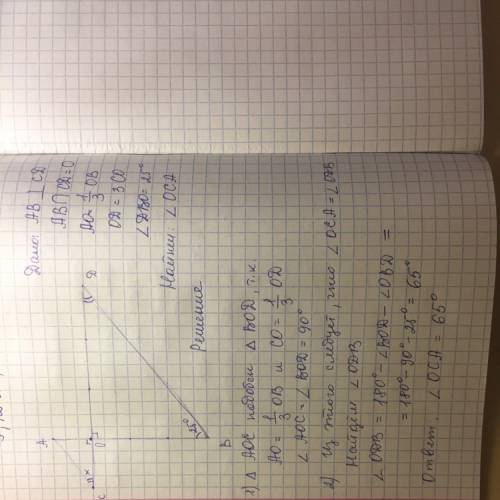 Дано: AB ⊥ CD
AB ∩ CD = O
AO = 1/3 OB
OD = 3 CO
∠DBO = 25°
Найти: ∠OCA
A
D
C
x
O
25°
B
Решение
1) △ AOC подобен △ BOD, т.к.
AO = 1/3 OB и CO = 1/3 OD
∠ AOC = ∠ BOD = 90°
2) Из этого следует, что ∠OCA = ∠ODB
Найдём ∠ODB
∠ODB = 180° - ∠BOD - ∠OBD =
= 180° - 90° - 25° = 65°
Ответ ∠OCA = 65°